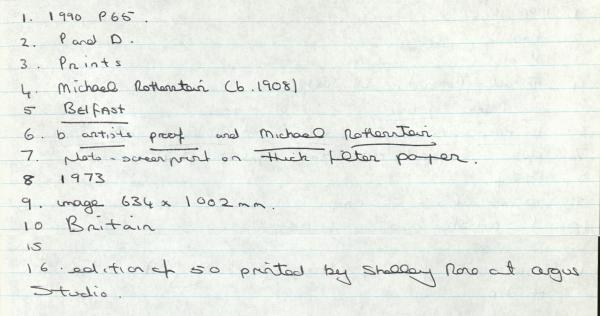 1. 1990 P65.
2. P and D.
3. Prints
4. Michael Rothenstein (b.1908)
5 BELFAST
6. b artists proof and Michael Rothenstein
7. Photo-screenprint on thick filter paper.
8 1973
9. image 634 x 1002mm.
10 Britain
15
16. edition of 50 printed by Shelley Rose at argus
Studio.